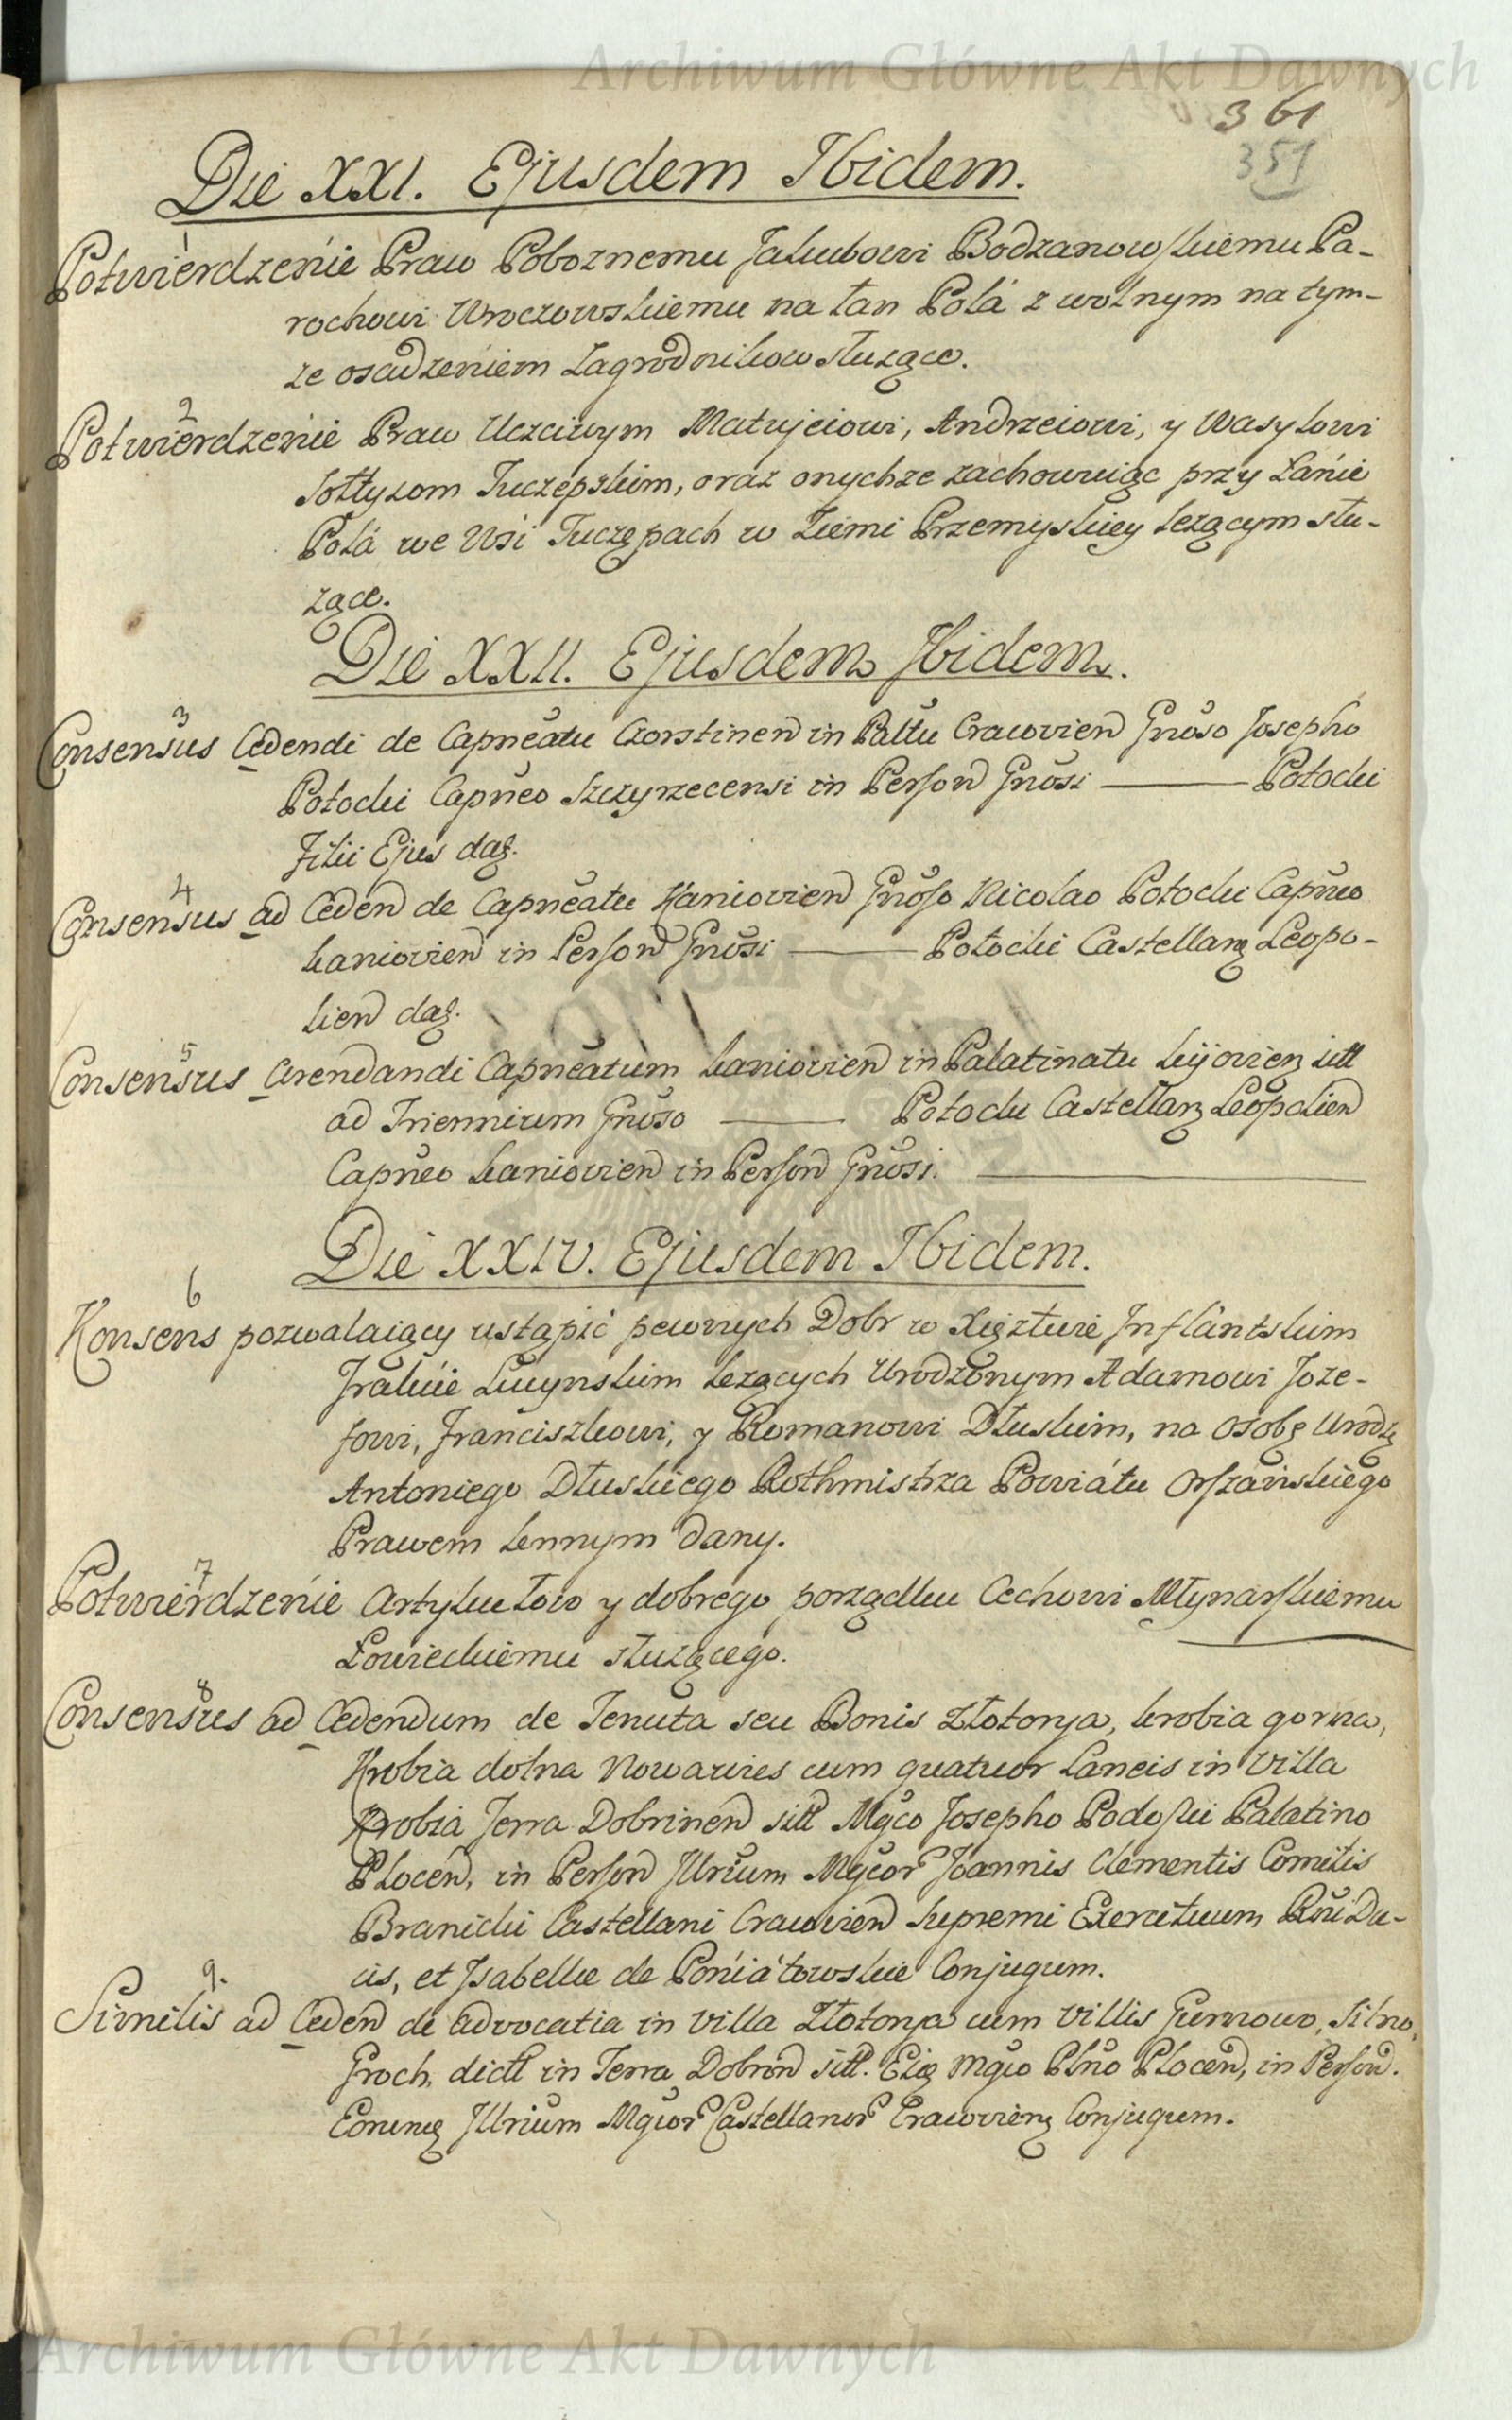 Archiwum Główne Akt Dawnych
361
351
Die XXI. Ejusdem Ibidem.
1
Potwierdzenie Praw Poboznemu Jakubowi Bodzanowskiemu Pa-
rochowi Uroczowskiemu na łan Polá z wolnym na tym-
ze osadzeniem Zagrodnikow służące.
2
Potwierdzenie Praw Uczciwym Matyjeiowi, Andrzeiowi, y Wasylowi
Sołtysom Tuczepskim, oraz onychze zachowuiąc przy Łanie
Polá we Wsi Tuczępach w Ziemi Przemyskiey lezącym słu-
zące.
Die XXII. Ejusdem Ibidem.
3
Consensus Cedendi de Capneatu Czorstinen in Paltu Cracovien Gnoso Josepho
Potocki Capneo Szczyrzecensi in Person Gnosi ——— Potocki
Filii Ejus daŧ.
4
Consensus ad Ceden de Capneatu Kaniovien Gnoso Nicolao Potocki Capneo
kaniovien in Person Gnosi ——— Potocki Castellanꝫ Leopo-
lien daŧ.
5
Consensus Arendandi Capneatum kaniovien in Palatinatu kijovienꝫ sitt
ad Triennium Gnoso ——— Potocki Castellanꝫ Leopolien
Capneo kaniovien in Person Gnosi. ———
Die XXIV. Ejusdem Ibidem.
6
Konsens pozwalaiący ustąpić pewnych Dobr w Xięztwie Inflántskim
Trakcie Lucynskim lezących Urodzonym Adamowi Joze-
fowi, Franciszkowi, y Romanowi Dłuskim, na osobę Urodzꝫ
Antoniego Dłuskiego Rothmistrza Powiátu Orszánskiego
Prawem lennym dany.
7
Potwierdzenie Artykułow y dobrego porządku Cechowi Młynarskiemu
Łowieckiemu słuzącego.
8
Consensus ad Cedendum de Tenuta seu Bonis Złotorya, krobia gorna,
Krobia dolna Nowawies cum quatuor Laneis in Villa
Krobia Terra Dobrinen sitt Mgco Josepho Podoski Palatino
Plocen, in Person Illrium Mgcor Joannis Clementis Comitis
Branicki Castellani Cracovien Supremi Exercituum Rni Du-
cis, et Isabellæ de Poniátowskie Conjugum.
9.
Similis ad Ceden de Advocatia in Villa Złotorya cum Villis Gumowo, Silno,
Groch, dictt in Terra Dobrin sitt. Eidꝫ Mgco Plno Plocen, in Person.
Eorumꝫ Illrium Mgcor Castellanor Cracovienꝫ Conjugum.
Archiwum Główne Akt Dawnych